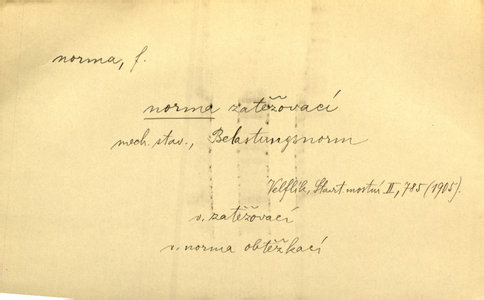 norma, f.
norma zatěžovací
mech. stav., Belastungsnorm
Velflík, Stavit. mostní II, 785 (1905).
v. zatěžovací
v. norma obtěžkací